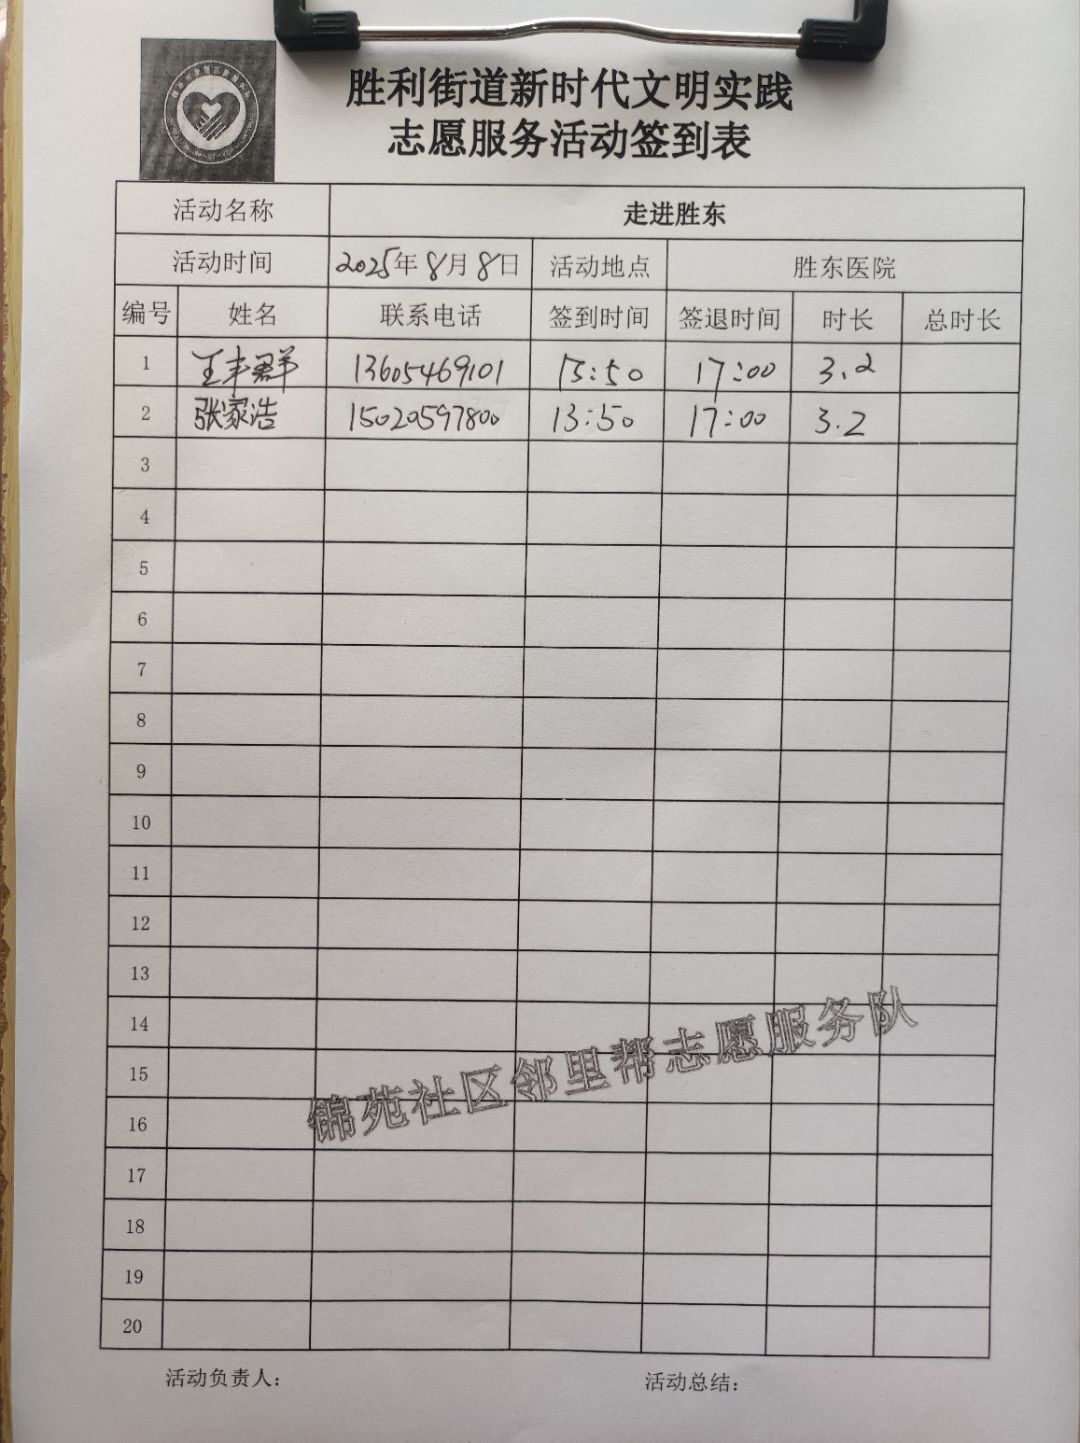 胜利街道新时代文明实践
志愿服务活动签到表
活动名称 走进胜东
活动时间 2025年8月8日 活动地点 胜东医院
编号 姓名 联系电话 签到时间 签退时间 时长 总时长
1 王丰群 13605469101 13:50 17:00 3.2
2 张家浩 15020597800 13:50 17:00 3.2
3
4
5
6
7
8
9
10
11
12
13
14
15
16
17
18
19
20
锦苑社区邻里帮志愿服务队
活动负责人: 活动总结: